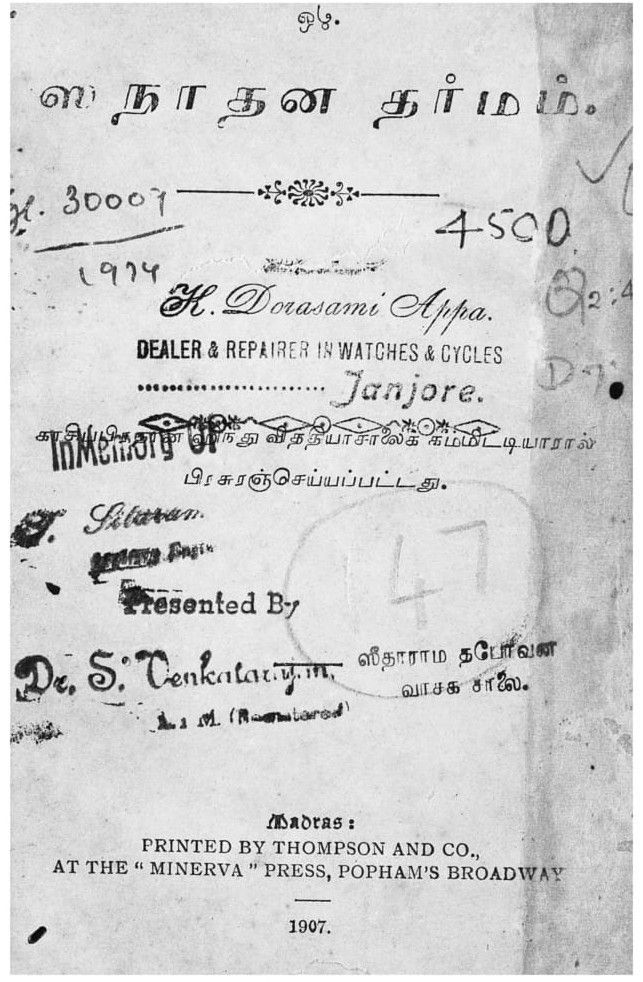 ஸநாதன தர்மம்.
30007
1974
4500
K. Dorasami Appa.
DEALER & REPAIRER IN WATCHES & CYCLES
Tanjore.
காசிப்பிரதான ஹிந்து வித்தியாசாலைக் கம்மிட்டியாரால்
In Memory Of
பிரசுரஞ்செய்யப்பட்டது.
147
Presented By
Dr. S.
ஸீதாராம தபோவன
வாசக சாலை.
Madras:
PRINTED BY THOMPSON AND CO.,
AT THE “ MINERVA ” PRESS, POPHAM'S BROADWAY
1907.